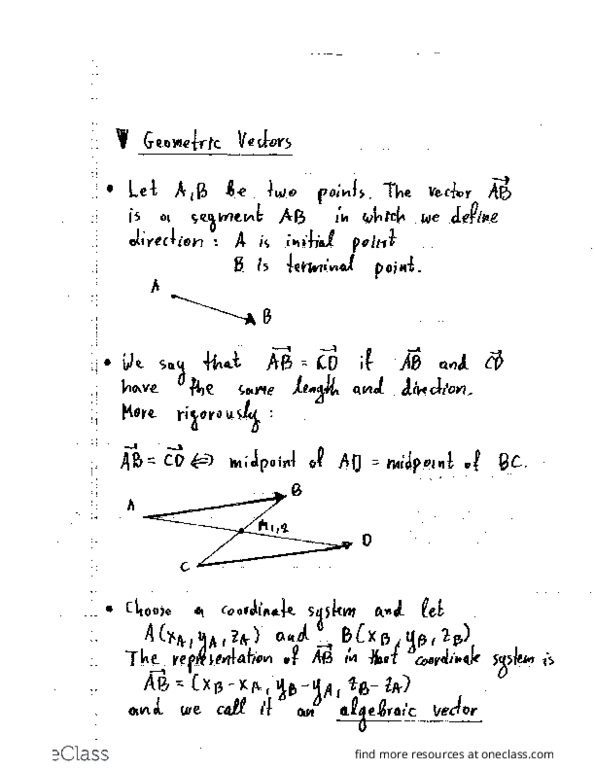 ▼ Geometric Vectors
• Let A,B be two points. The vector A⃗B⃗
is a segment AB in which we define
direction: A is initial point
B is terminal point.
A
B
• We say that A⃗B⃗ = C⃗D⃗ if A⃗B⃗ and C⃗D⃗
have the same length and direction.
More rigorously:
A⃗B⃗ = C⃗D⃗ ⇔ midpoint of AD = midpoint of BC.
B
A
M1,2
D
C
• Choose a coordinate system and let
A(xA, yA, zA) and B(xB, yB, zB)
The representation of A⃗B⃗ in that coordinate system is
A⃗B⃗ = (xB-xA, yB-yA, zB-zA)
and we call it an algebraic vector
eClass
find more resources at oneclass.com